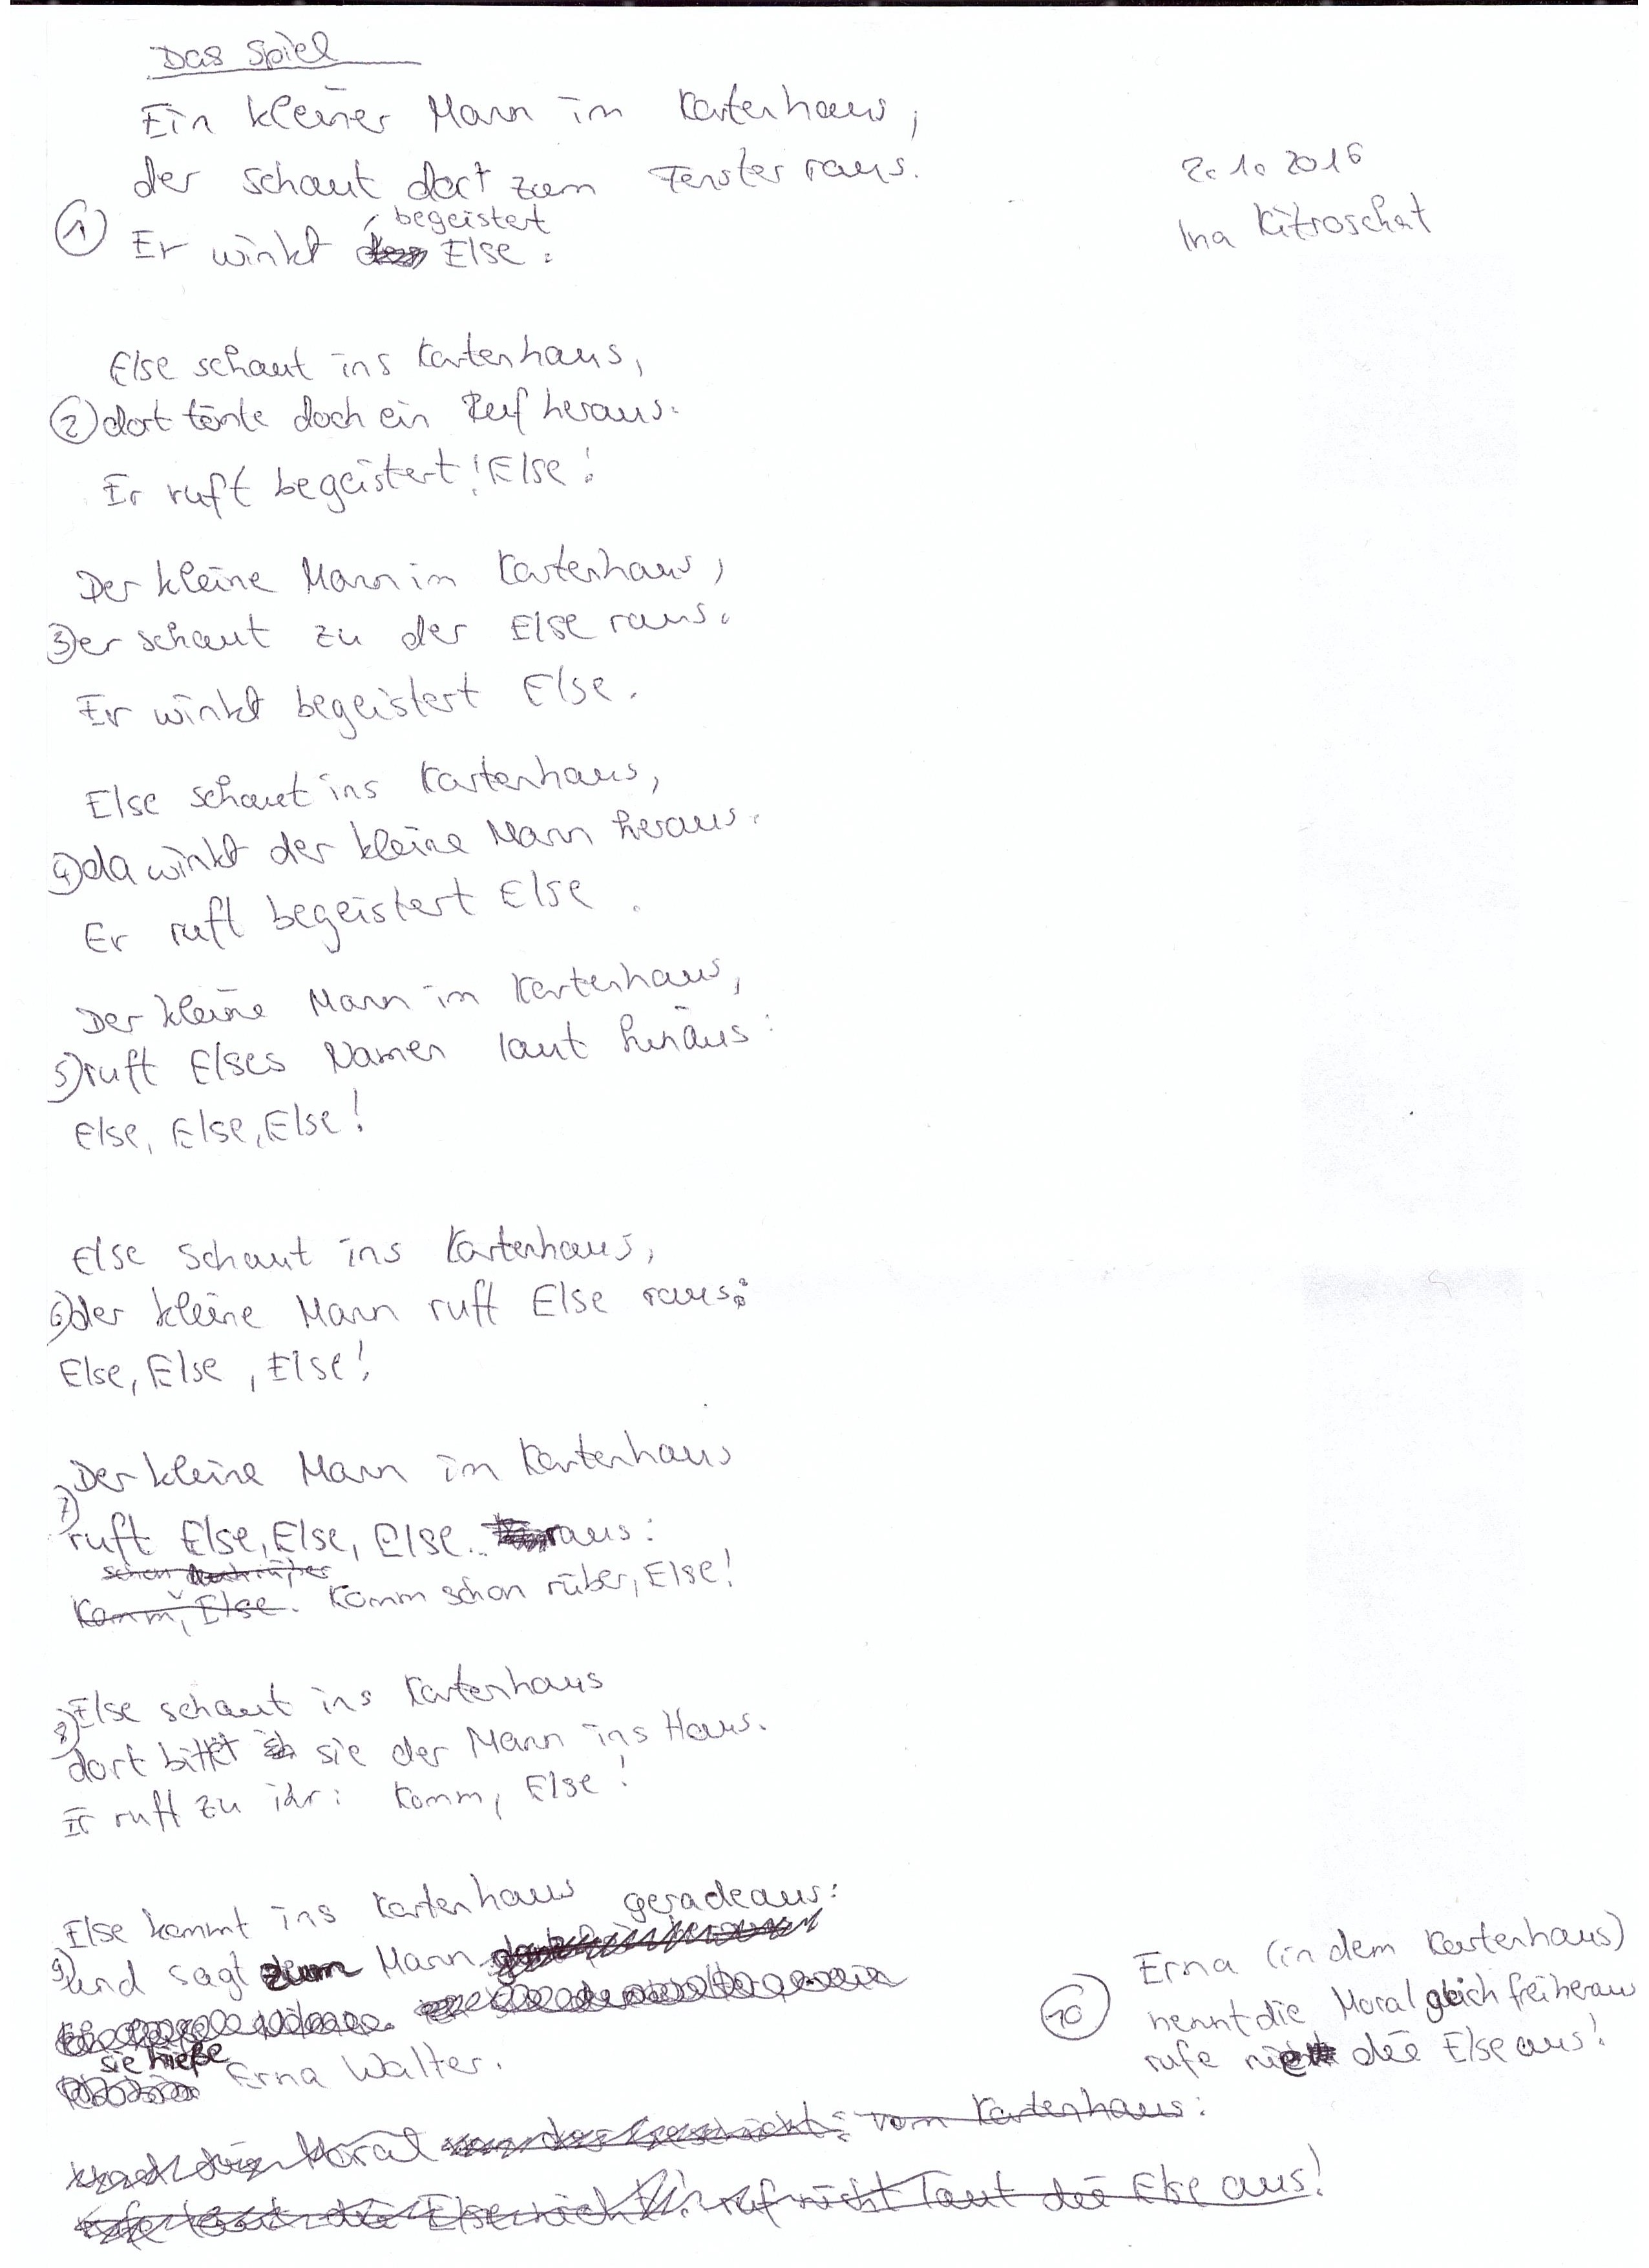 Das Spiel
Ein kleiner Mann im Kartenhaus,
der schaut dort zum Fenster raus.
2. 10 2016
Ina Kitroschat
begeistert
① Er winkt Else.
Else schaut ins Kartenhaus,
② dort tönte doch ein Ruf heraus:
Er ruft begeistert! Else!
Der kleine Mann im Kartenhaus,
3) er schaut zu der Else raus.
Er winkt begeistert Else.
Else schaut ins Kartenhaus,
4) da winkt der kleine Mann heraus.
Er ruft begeistert Else.
Der kleine Mann im Kartenhaus,
5) ruft Elses Namen laut hinaus:
Else, Else, Else!
Else schaut ins Kartenhaus,
6) der kleine Mann ruft Else raus:
Else, Else, Else!
Der kleine Mann im Kartenhaus
7) ruft Else, Else, Else.. raus:
schon rüber
Komm, Else. Komm schon rüber, Else!
Else schaut ins Kartenhaus
8) dort bittet sie der Mann ins Haus.
Er ruft zu ihr: Komm, Else!
Else kommt ins Kartenhaus geradeaus:
9) und sagt zum Mann
sie hieße
Erna Walter.
Erna (in dem Kartenhaus)
⑩ nennt die Moral gleich frei heraus
rufe nie die Else aus!
Moral von der Geschicht: vom Kartenhaus:
rufe laut die Else nicht! ruf nicht laut die Else aus!